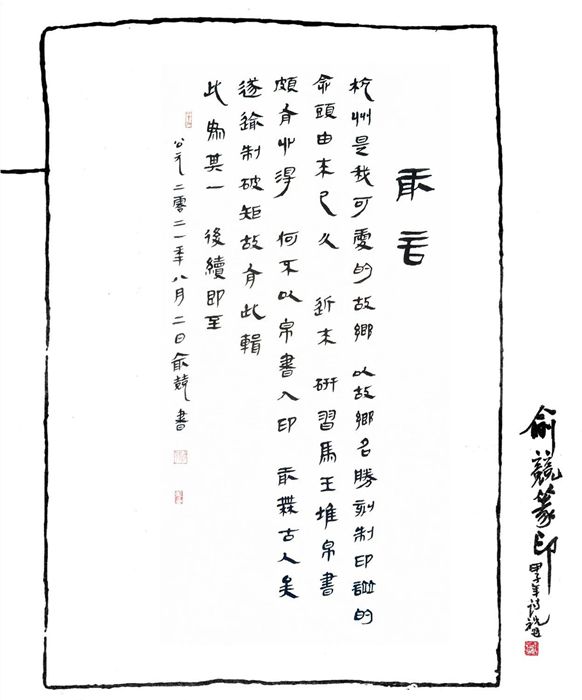 前言
杭州是我可愛的故鄉 以故鄉名勝刻制印譜的
念頭由来已久 近来 研習馬王堆帛書
頗有收得 何不以帛書入印 前無古人矣
遂踰制破矩故有此輯
此為其一 後續即至
公元二零二一年八月二日俞競書
俞競篆印
甲子年